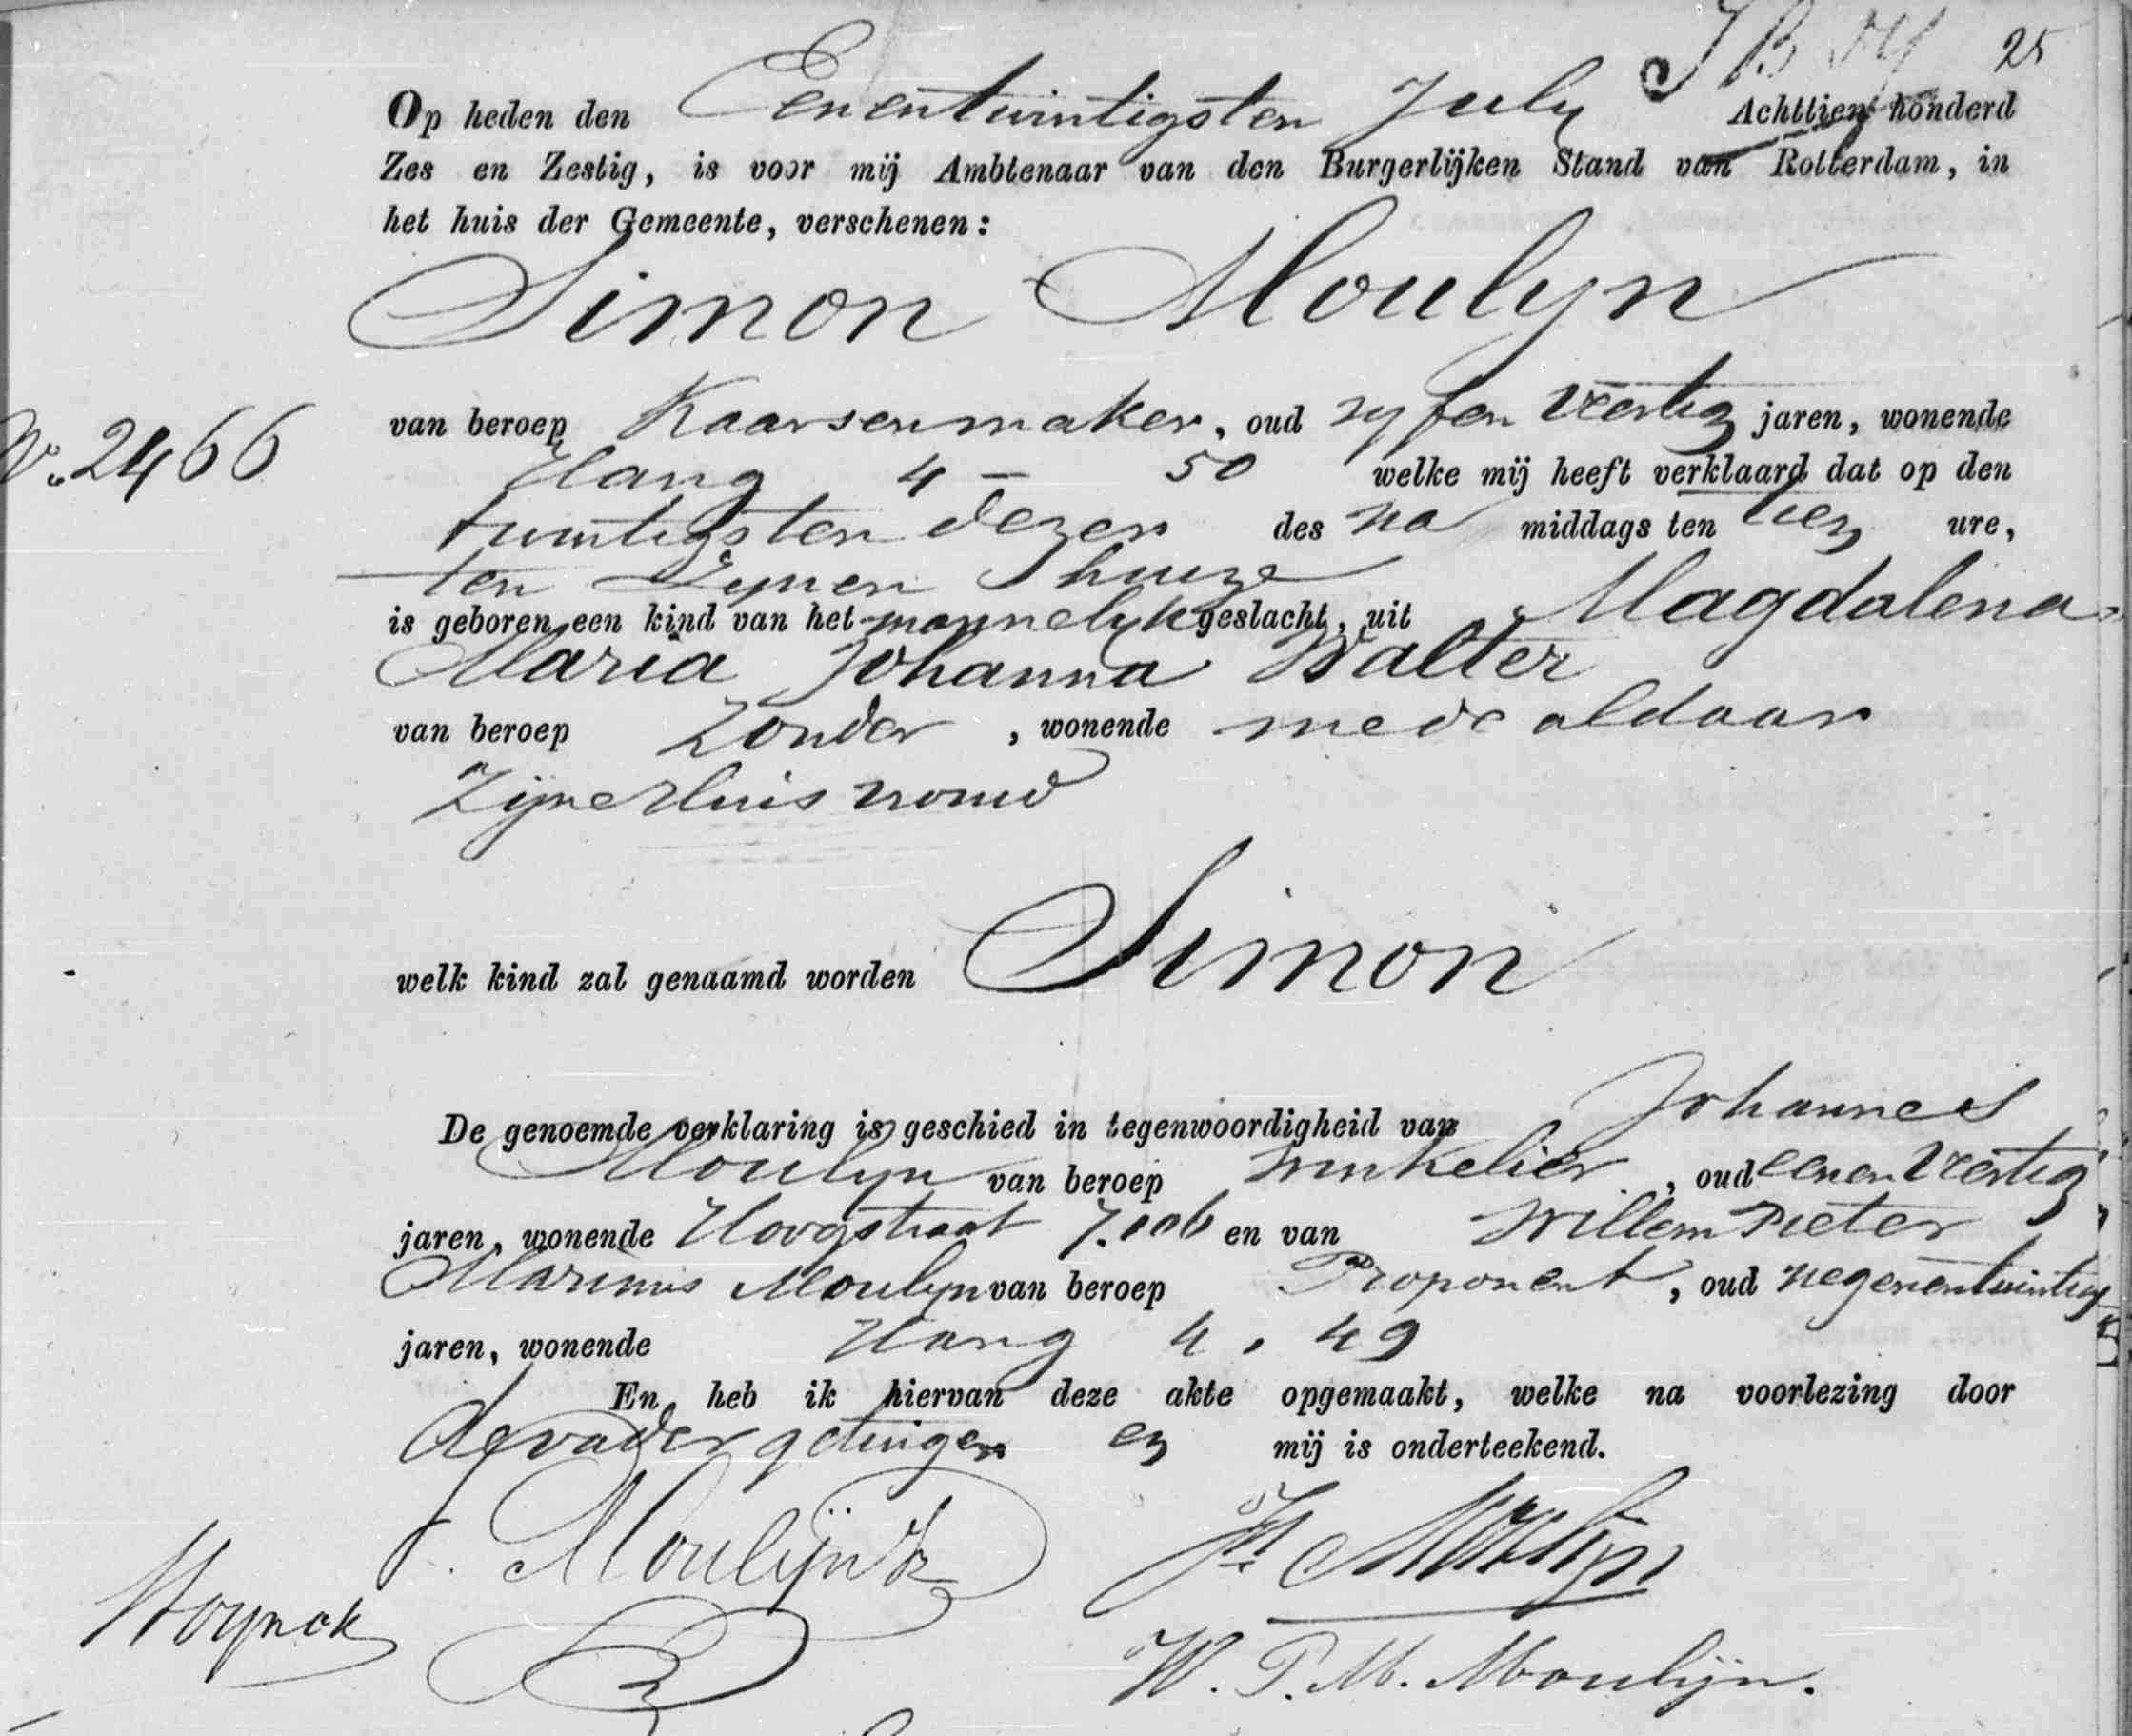 25
Op heden den Eenentwintigsten July Achttien honderd
Zes en Zestig, is voor mij Ambtenaar van den Burgerlijken Stand van Rotterdam, in
het huis der Gemeente, verschenen:
Simon Moulyn
No. 2466
van beroep Kaarsenmaker, oud vyf en Veertig jaren, wonende
Hang 4 - 50 welke mij heeft verklaard dat op den
twintigsten dezer des na middags ten tien ure,
ten Zynen huize
is geboren een kind van het mannelyk geslacht, uit Magdalena
Maria Johanna Walter
van beroep Zonder, wonende mede aldaar
Zijne Huisvrouw
welk kind zal genaamd worden Simon
De genoemde verklaring is geschied in tegenwoordigheid van Johannes
Moulyn van beroep Winkelier, oud eenen Veertig
jaren, wonende Hoogstraat 7.106 en van Willem Pieter
Marinus Moulyn van beroep Proponent, oud negenentwintig
jaren, wonende Hang 4. 49
En heb ik hiervan deze akte opgemaakt, welke na voorlezing door
de vader getuigen en mij is onderteekend.
Moulijn Jr
Moulijn
W. P. M. Moulijn.